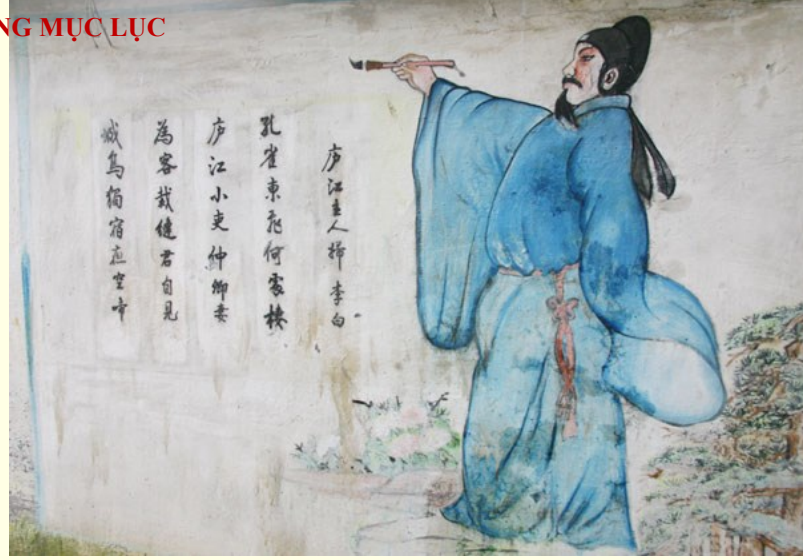 NG MỤC LỤC
庐江主人 李白
孔雀東飛何處棲
庐江小吏仲卿妻
為客裁縫君自見
城烏獨宿空啼